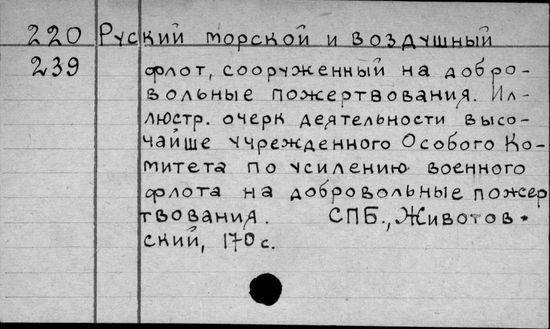 220 Руский морской и воздушный
239 флот, сооруженный на добро-
вольные пожертвования. Ил-
люстр. очерк деятельности высо-
чайше учрежденного Особого Ко-
митета по усилению военного
флота на добровольные пожер
твования. СПБ., Животов-
ский, 170 с.